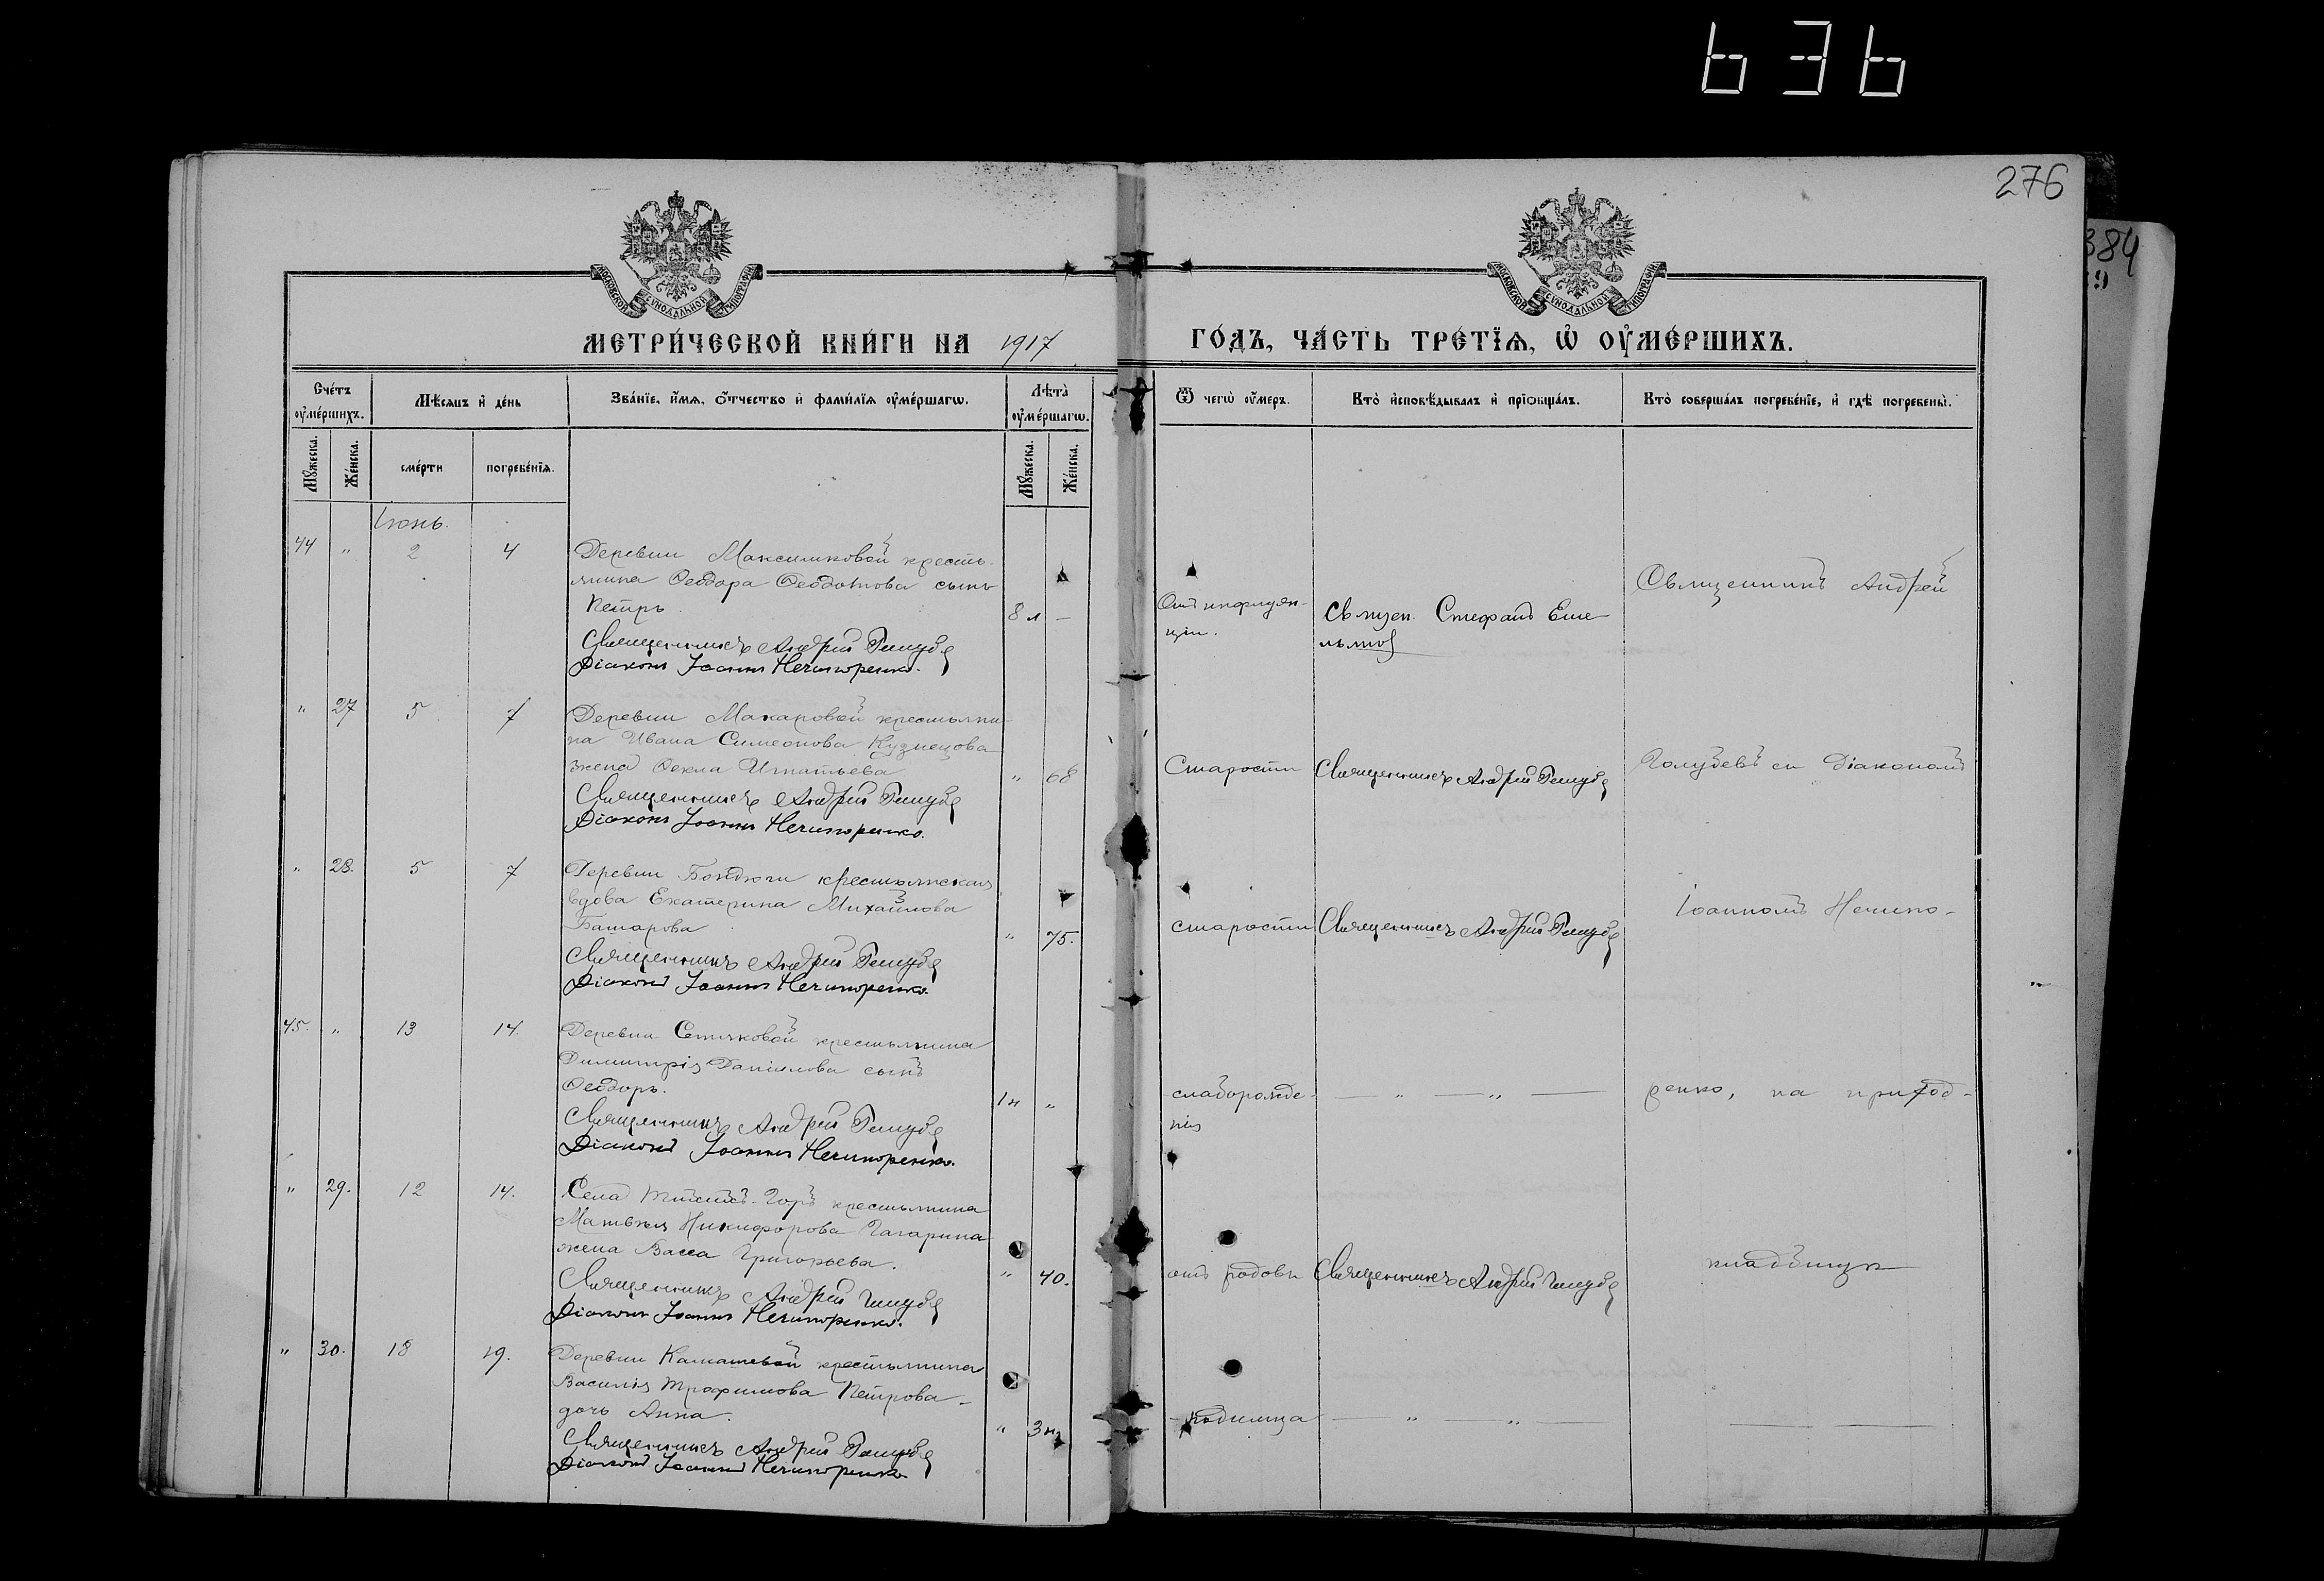 636
276
384
9
МОСКОВСКОЙ СѴНОДАЛЬНОЙ ТИПОГРАФІИ
МОСКОВСКОЙ СѴНОДАЛЬНОЙ ТИПОГРАФІИ
МЕТРИ́ЧЕСКОЙ КНИ́ГИ НА 1917
ГО́ДЪ, ЧА́СТЬ ТРЕ́ТЇѦ, Ѡ҆ ОУ҆МЕ́РШИХЪ.
Сче́тъ оу҆ме́ршихъ.
Мѣ́сѧцъ и҆ де́нь
Зва́нїе, и҆́мѧ, ѻ҆́тчество и҆ фами́лїѧ оу҆ме́ршагѡ.
Лѣ́та оу҆ме́ршагѡ.
Ѿ чегѡ̀ оу҆́меръ.
Кто̀ и҆сповѣ́дывалъ и҆ прїѻбща́лъ.
Кто̀ соверша́лъ погребе́нїе, и҆ гдѣ̀ погребены̀.
Мꙋ́жеска.
Же́нска.
сме́рти
погребе́нїѧ.
Мꙋ́жеска.
Же́нска.
Іюнь.
44 " 2 4 Деревни Максимковой кресть-
янина Ѳеодора Ѳеодотова сынъ
Петръ. 8 л —
Священникъ Андрей Голубе
Діаконъ Іоаннъ Нечипоренко.
Отъ инфлуэн-
ціи.
Священ. Стефанъ Еме
льянов
Священникъ Андрей
" 27 5 7 Деревни Макаровой крестьяни-
на Ивана Симеонова Кузнецова
жена Ѳекла Игнатьева " 68
Священникъ Андрей Голубе
Діаконъ Іоаннъ Нечипоренко.
Старости Священникъ Андрей Голубе
Голубевъ съ Діакономъ
" 28. 5 7 Деревни Бондюги крестьянская
вдова Екатерина Михайлова
Башарова " 75.
Священникъ Андрей Голубе
Діаконъ Іоаннъ Нечипоренко.
старости Священникъ Андрей Голубе
Іоанномъ Нечипо-
45. " 13 14. Деревни крестьянина
Димитрія Даніилова сынъ
Ѳеодоръ. 1 н "
Священникъ Андрей Голубе
Діаконъ Іоаннъ Нечипоренко.
слаборожде-
нія
— " — " —
ренко, на приход-
" 29. 12 14. Села Горъ крестьянина
Матвѣя Никифорова Гагарина
жена Васса Григорьева. " 40.
Священникъ Андрей Голубе
Діаконъ Іоаннъ Нечипоренко.
отъ родовъ Священникъ Андрей Голубе
кладбищѣ
" 30. 18 19. Деревни крестьянина
Василія Трофимова Петрова
дочь Анна. " 3 н
Священникъ Андрей Голубе
Діаконъ Іоаннъ Нечипоренко
родимца — " — " —